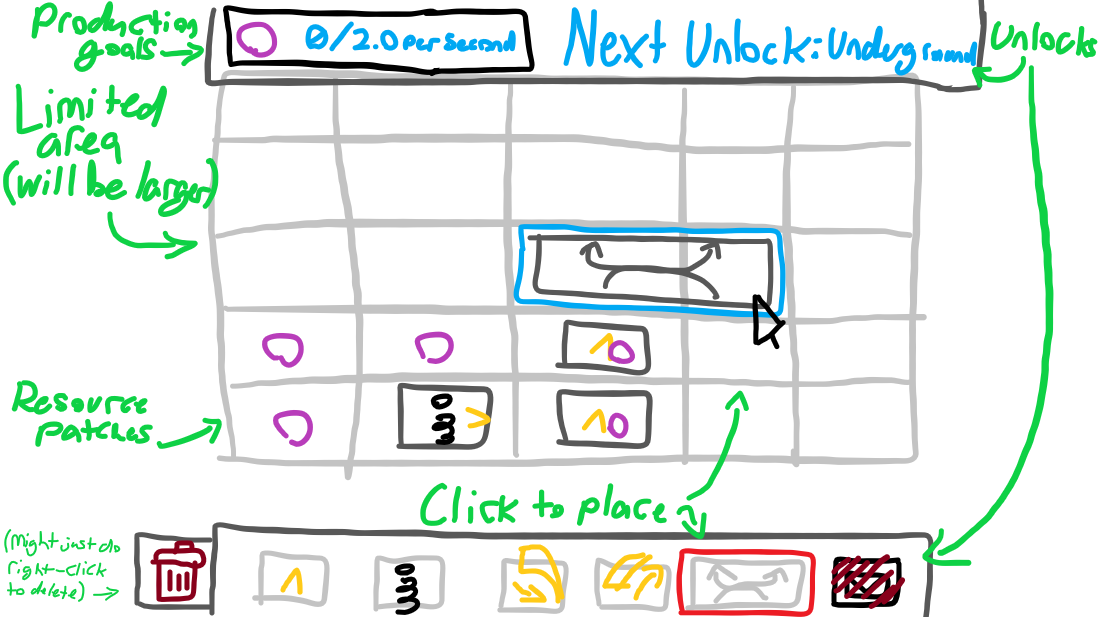 Production
goals
0/2.0 per second
Next Unlock: Underground
Unlocks
Limited
area
(will be larger)
Resource
patches
Click to place
(Might just do
right-click
to delete)